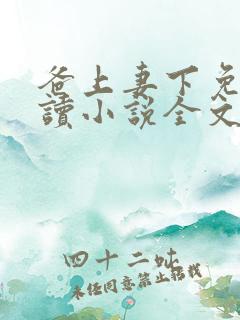 爸上妻下免
讀小说全文
四十二
未经同意禁止转载